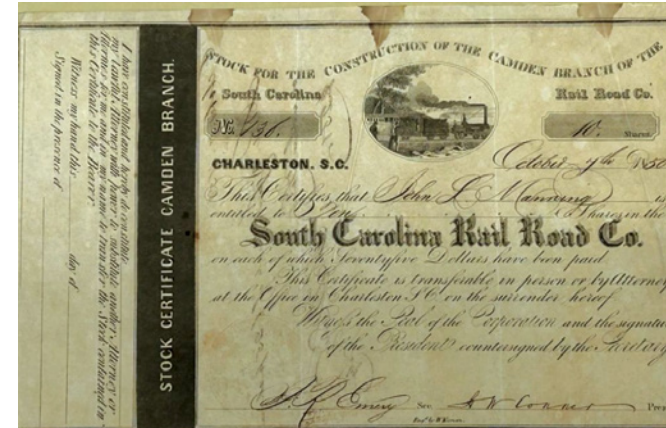 I have constituted and hereby do constitute
my lawful Attorney with power to substitute another Attorney or
Attorneys for me and in my name to transfer the Stock contained in
this Certificate to the Bearer.
Witness my hand this day of
Signed in the presence of
STOCK CERTIFICATE CAMDEN BRANCH.
STOCK FOR THE CONSTRUCTION OF THE CAMDEN BRANCH OF THE
South Carolina Rail Road Co.
No. 136. 10. Shares.
CHARLESTON, S.C. October 9th 1850
This Certifies, that John L Manning is
entitled to Ten Shares in the
South Carolina Rail Road Co.
on each of which Seventyfive Dollars have been paid
This Certificate is transferable in person or by Attorney
at the Office in Charleston S.C. on the surrender hereof
Witness the Seal of the Corporation and the signature
of the President countersigned by the Secretary
Emery Sec. H W Conner Pres